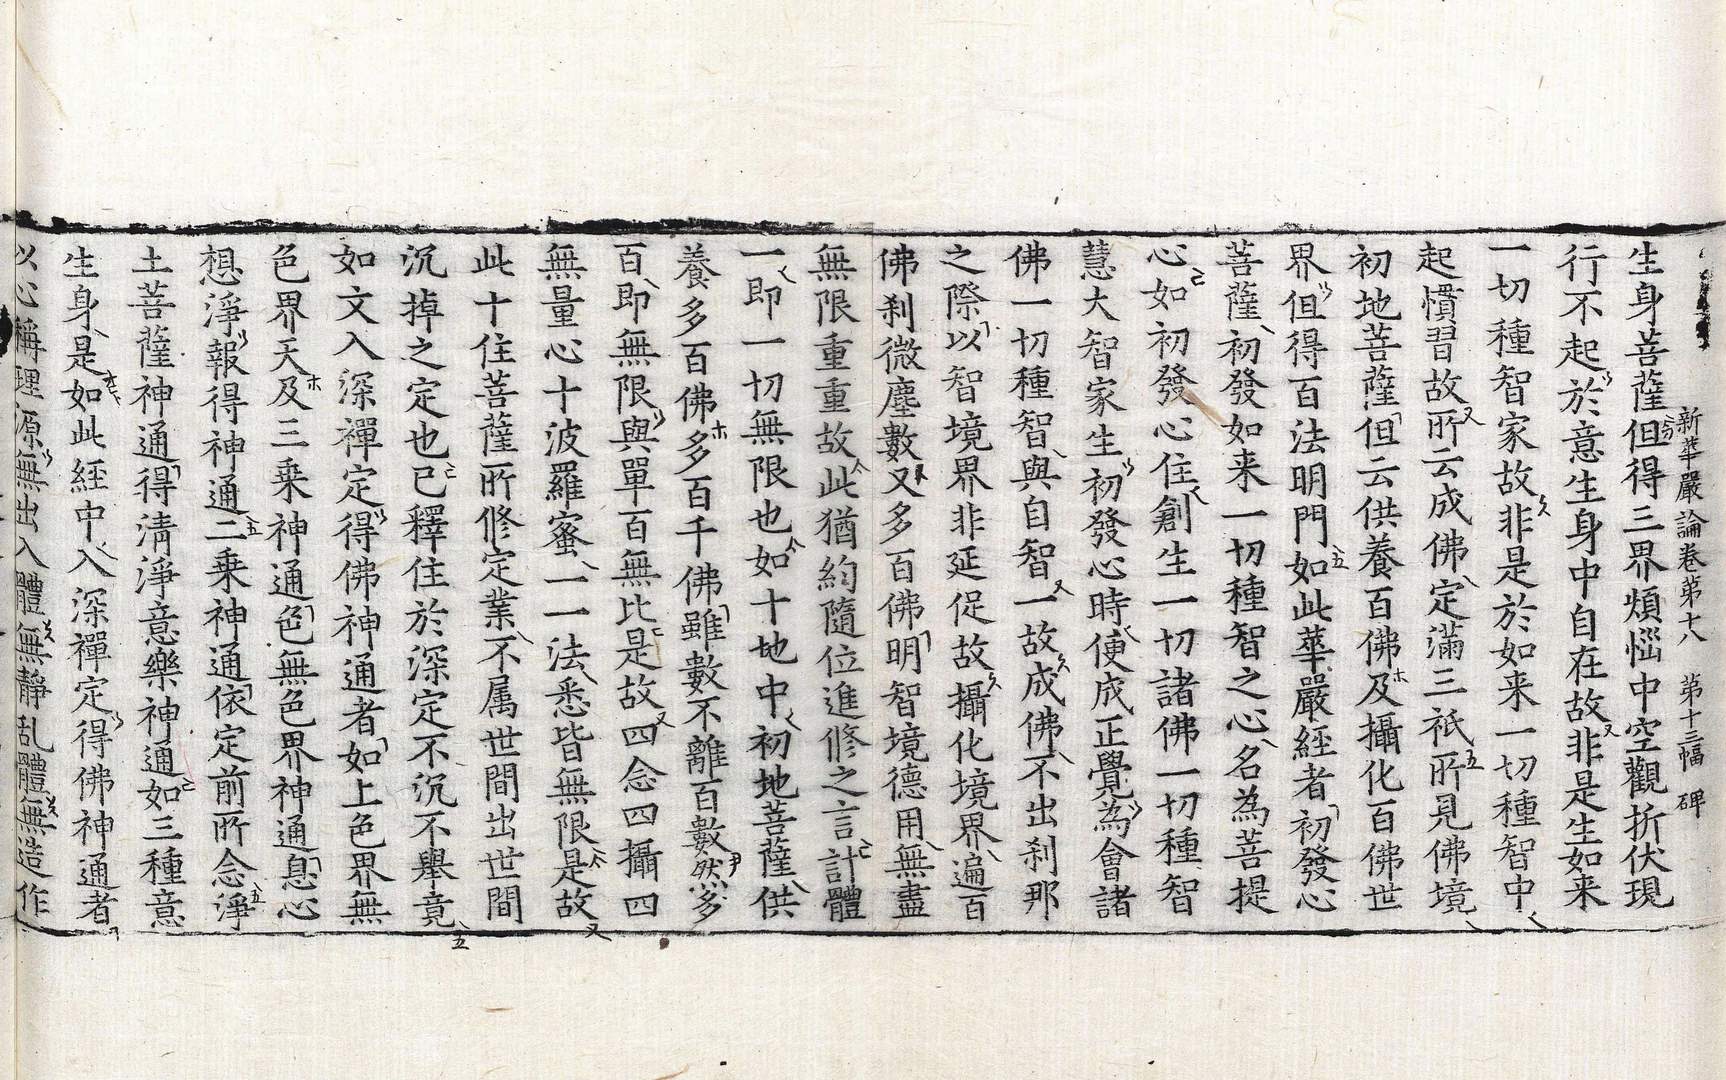 新華嚴論卷第十八 第十三幅 碑
生身菩薩但得三界煩惱中空觀折伏現
行不起於意生身中自在故非是生如来
一切種智家故非是於如来一切種智中
起慣習故所云成佛定滿三祇所見佛境
初地菩薩但云供養百佛及攝化百佛世
界但得百法明門如此華嚴経者初發心
菩薩初發如来一切種智之心名為菩提
心如初發心住創生一切諸佛一切種智
慧大智家生初發心時便成正覺為會諸
佛一切種智與自智一故成佛不出刹那
之際以智境界非延促故攝化境界遍百
佛刹微塵數又多百佛明智境德用無盡
無限重重故此猶約隨位進修之言計體
一即一切無限也如十地中初地菩薩供
養多百佛多百千佛雖數不離百數然多
百即無限與單百無比是故四念四攝四
無量心十波羅蜜一一法悉皆無限是故
此十住菩薩所修定業不属世間出世間
沉掉之定也已釋住於深定不沉不舉竟
如文入深禪定得佛神通者如上色界無
色界天及三乗神通色無色界神通息心
想淨報得神通二乗神通依定前所念淨
土菩薩神通得清淨意樂神通如三種意
生身是如此経中入深禪定得佛神通者
以心稱理源無出入體無靜乱體無造作